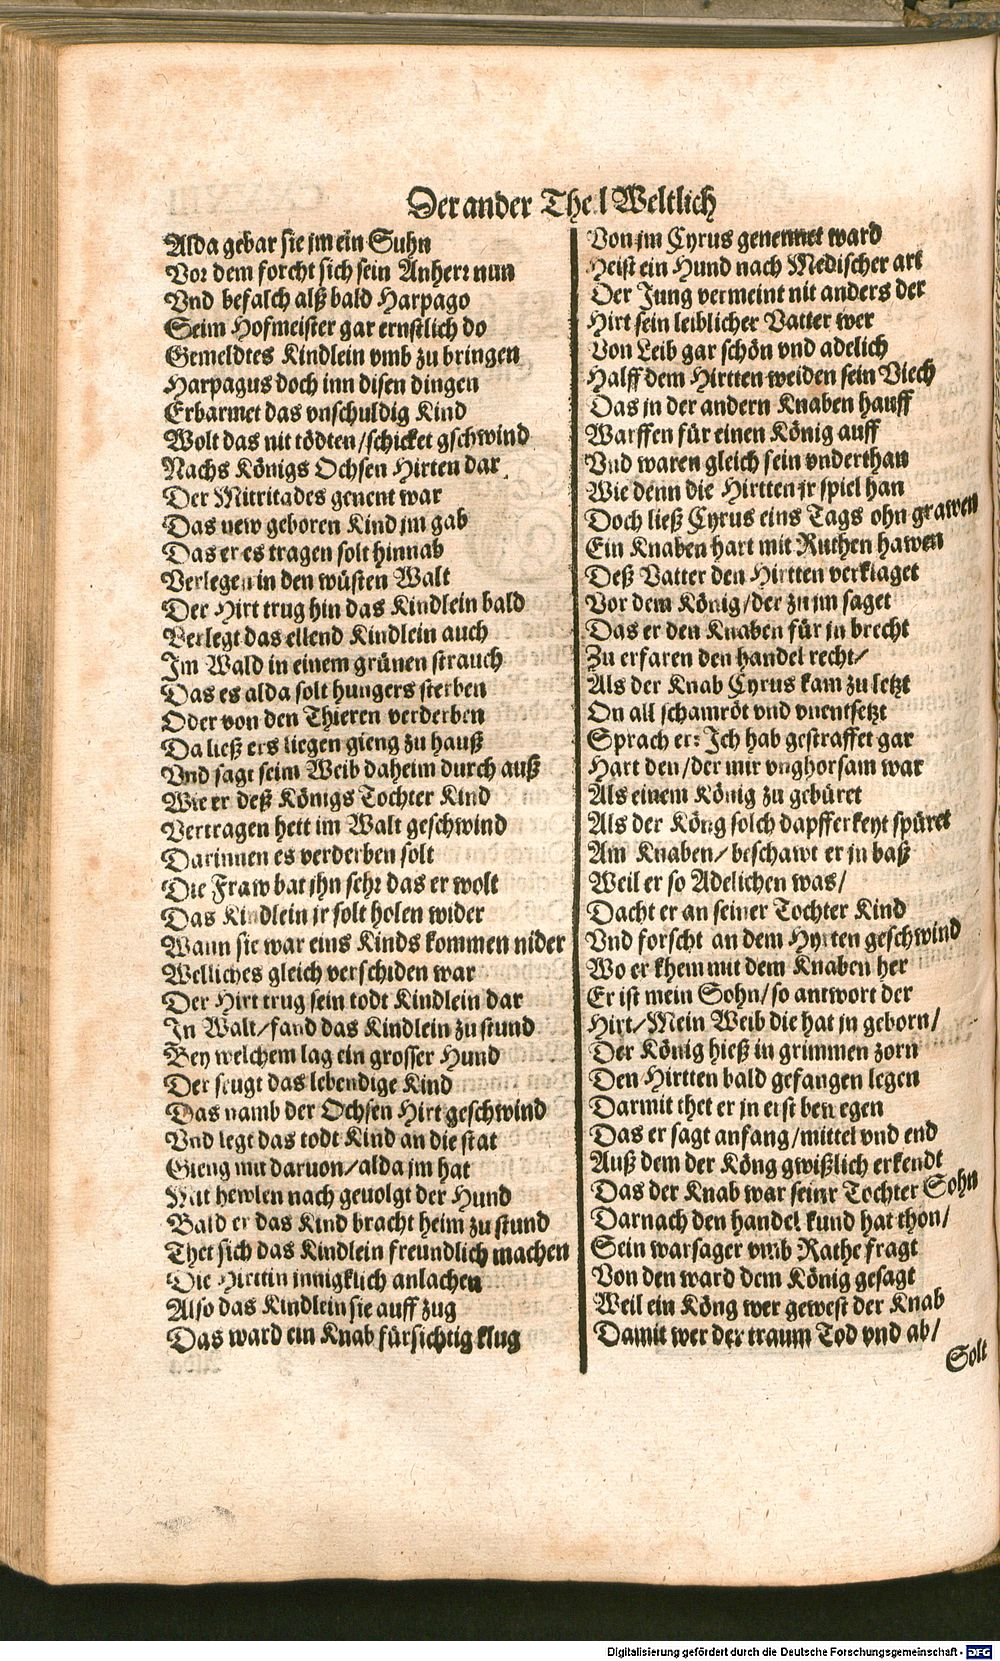 Der ander Theil Weltlich
Alda gebar sie jm ein Suhn
Vor dem forcht sich sein Anherr nun
Vnd befalch alß bald Harpago
Seim Hofmeister gar ernstlich do
Gemeldtes Kindlein vmb zu bringen
Harpagus doch inn disen dingen
Erbarmet das vnschuldig Kind
Wolt das nit tödten/schicket gschwind
Nachs Königs Ochsen Hirten dar
Der Mitritades genent war
Das new geboren Kind jm gab
Das er es tragen solt hinnab
Verlegen in den wüsten Walt
Der Hirt trug hin das Kindlein bald
Verlegt das ellend Kindlein auch
Im Wald in einem grünen strauch
Das es alda solt hungers sterben
Oder von den Thieren verderben
Da ließ ers liegen gieng zu hauß
Vnd sagt seim Weib daheim durch auß
Wie er deß Königs Tochter Kind
Vertragen hett im Walt geschwind
Darinnen es verderben solt
Die Fraw bat jhn sehr das er wolt
Das Kindlein jr solt holen wider
Wann sie war eins Kinds kommen nider
Welliches gleich verschiden war
Der Hirt trug sein todt Kindlein dar
In Walt/fand das Kindlein zu stund
Bey welchem lag ein grosser Hund
Der seugt das lebendige Kind
Das namb der Ochsen Hirt geschwind
Vnd legt das todt Kind an die stat
Gieng mit daruon/alda jm hat
Mit hewlen nach geuolgt der Hund
Bald er das Kind bracht heim zu stund
Thet sich das Kindlein freundlich machen
Die Hirttin innigklich anlachen
Also das Kindlein sie auff zug
Das ward ein Knab fürsichtig klug
Von jm Cyrus genennet ward
Heist ein Hund nach Medischer art
Der Jung vermeint nit anders der
Hirt sein leiblicher Vatter wer
Von Leib gar schön vnd adelich
Halff dem Hirtten weiden sein Viech
Das jn der andern Knaben hauff
Warffen für einen König auff
Vnd waren gleich sein vnderthan
Wie denn die Hirtten jr spiel han
Doch ließ Cyrus eins Tags ohn grawen
Ein Knaben hart mit Ruthen hawen
Deß Vatter den Hirtten verklaget
Vor dem König/der zu im saget
Das er den Knaben für jn brecht
Zu erfaren den handel recht/
Als der Knab Cyrus kam zu letzt
On all schamröt vnd vnentsetzt
Sprach er: Ich hab gestraffet gar
Hart den/der mir vnghorsam war
Als einem König zu gebüret
Als der Köng solch dapfferkeyt spüret
Am Knaben/beschawt er jn baß
Weil er so Adelichen was/
Dacht er an seiner Tochter Kind
Vnd forscht an dem Hyrten geschwind
Wo er khem mit dem Knaben her
Er ist mein Sohn/so antwort der
Hirt/Mein Weib die hat jn geborn/
Der König hieß in grimmen zorn
Den Hirtten bald gefangen legen
Darmit thet er jn erst bewegen
Das er sagt anfang/mittel vnd end
Auß dem der Köng gwißlich erkendt
Das der Knab war seiner Tochter Sohn
Darnach den handel kund hat thon/
Sein warsager vmb Rathe fragt
Von den ward dem König gesagt
Weil ein Köng wer gewest der Knab
Damit wer der traum Tod vnd ab/
Solt
Digitalisierung gefördert durch die Deutsche Forschungsgemeinschaft - DFG